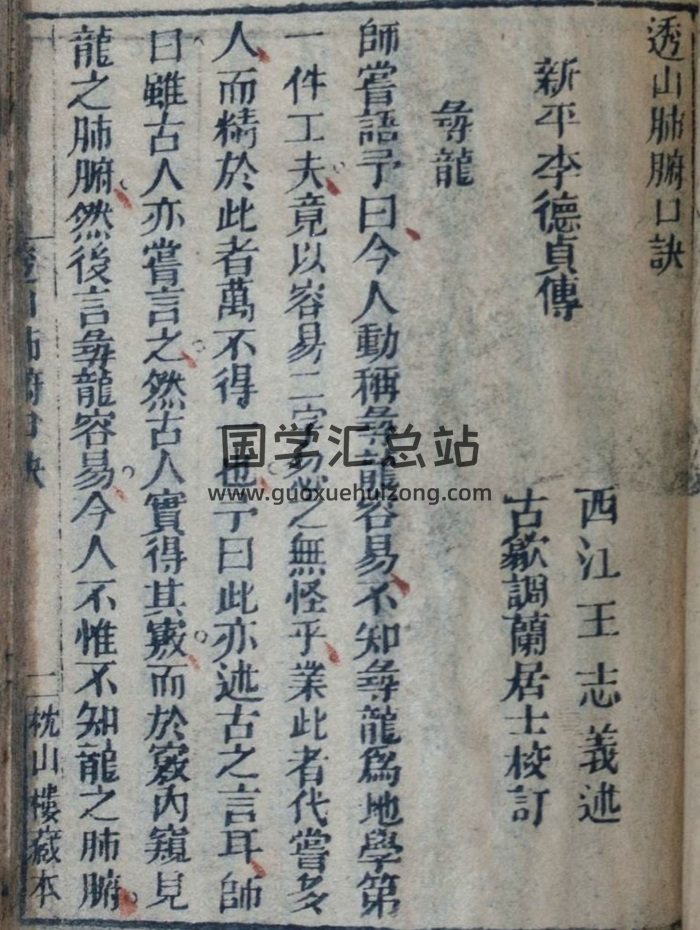 透山肺腑口訣
西江王志義述
新平李德貞傳
古歙調蘭居士校訂
尋龍
師嘗語予曰今人動稱尋龍容易不知尋龍爲地學第
一件工夫竟以容易二字易 之無怪乎業此者代嘗多
人而精於此者萬不得一也予曰此亦述古之言耳師
曰雖古人亦嘗言之然古人實得其竅而於竅內窺見
龍之肺腑然後言尋龍容易今人不惟不知龍之肺腑
透山肺腑口訣
二 枕山樓藏本
国学汇总站
www.guoxuehuizong.com